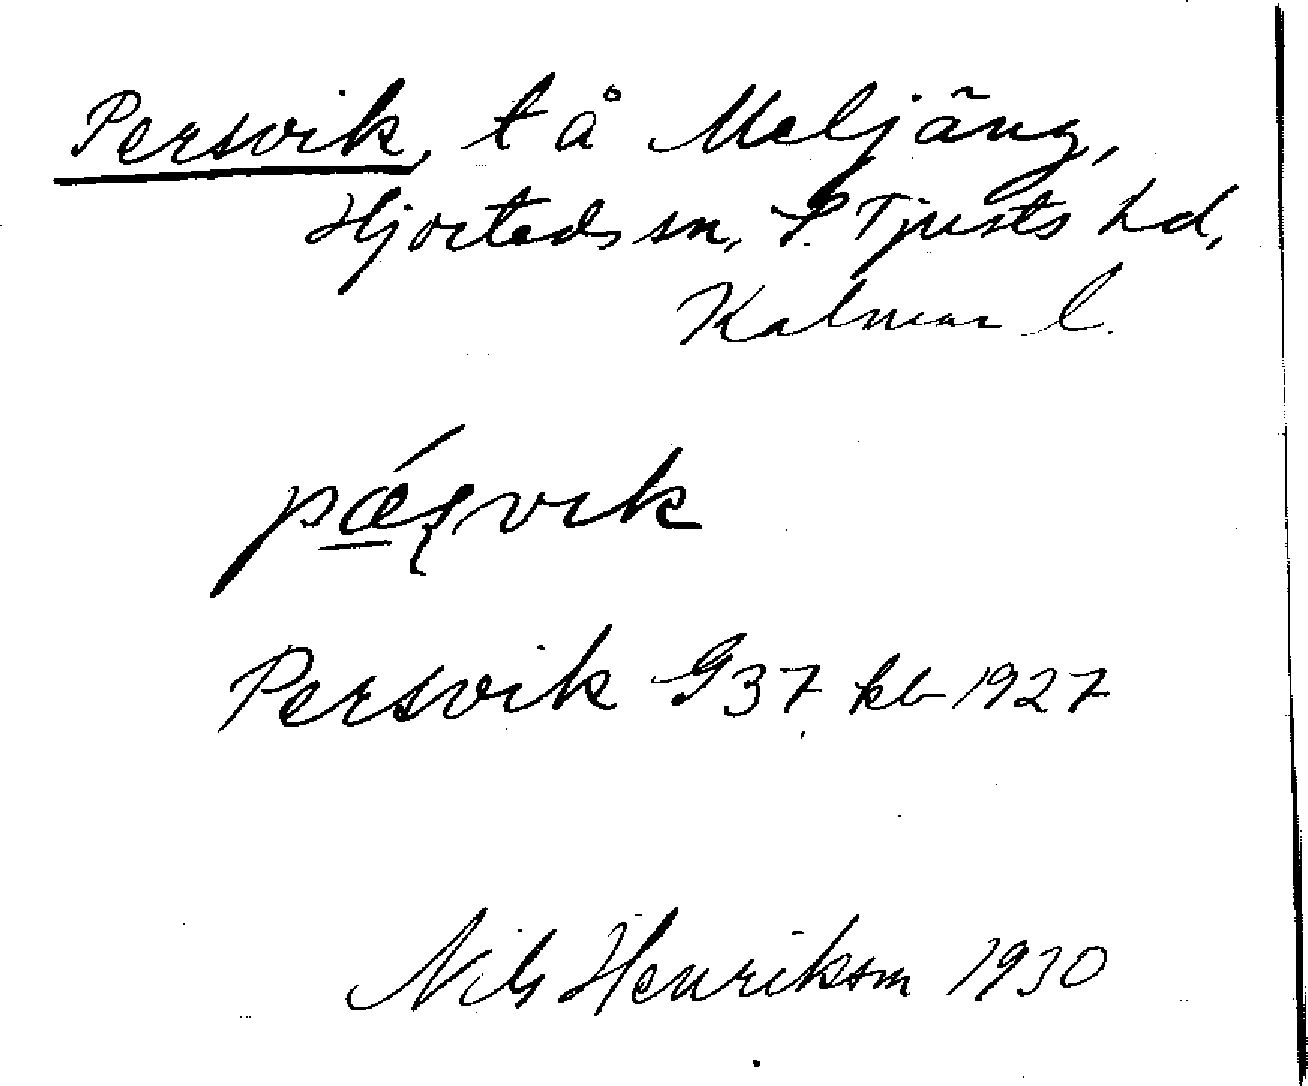 Persvik, t å Meljäng,
Hjorteds sn, S. Tjusts hd,
Kalmar l.
pǽʂvik
Persvik G37 kb 1927
Nils Henriksson 1930